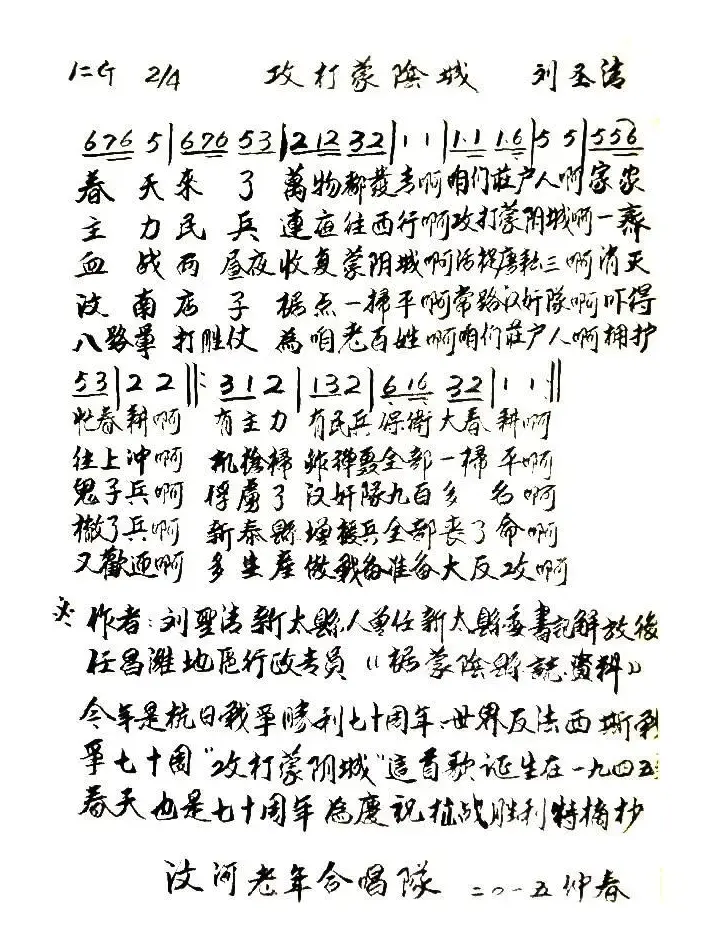 1=G 2/4 攻打蒙陰城 刘圣清
676 5|676 53|2 12 32|1 1|1·1 1·6|5 5|556
春天来了萬物都發青啊咱们莊户人啊家家
主力民兵連夜往西行啊攻打蒙阴城啊一齊
血战两昼夜收复蒙阴城啊活捉唐耘三啊消灭
汶南店子据点一掃平啊常路汉奸隊啊吓得
八路軍打胜仗為咱老百姓啊咱们莊户人啊拥护
53|2 2‖:312|132|616 32|1 1:‖
忙春耕啊 有主力有民兵保衛大春耕啊
往上冲啊 机槍掃炸弹轟全部一掃平啊
鬼子兵啊 俘虜了汉奸隊九百多名啊
撤了兵啊 新泰縣增援兵全部丧了命啊
又歡迎啊 多生産做战备准备大反攻啊
作者:刘聖清新太縣人曾任新太縣委書記解放後
任昌濰地區行政专員《据蒙陰縣誌資料》
今年是抗日戰爭勝利七十周年、世界反法西斯
爭七十周"攻打蒙阴城"這首歌诞生在一九四五
春天也是七十周年為慶祝抗战胜利特摘抄
汶河老年合唱隊 二〇一五仲春